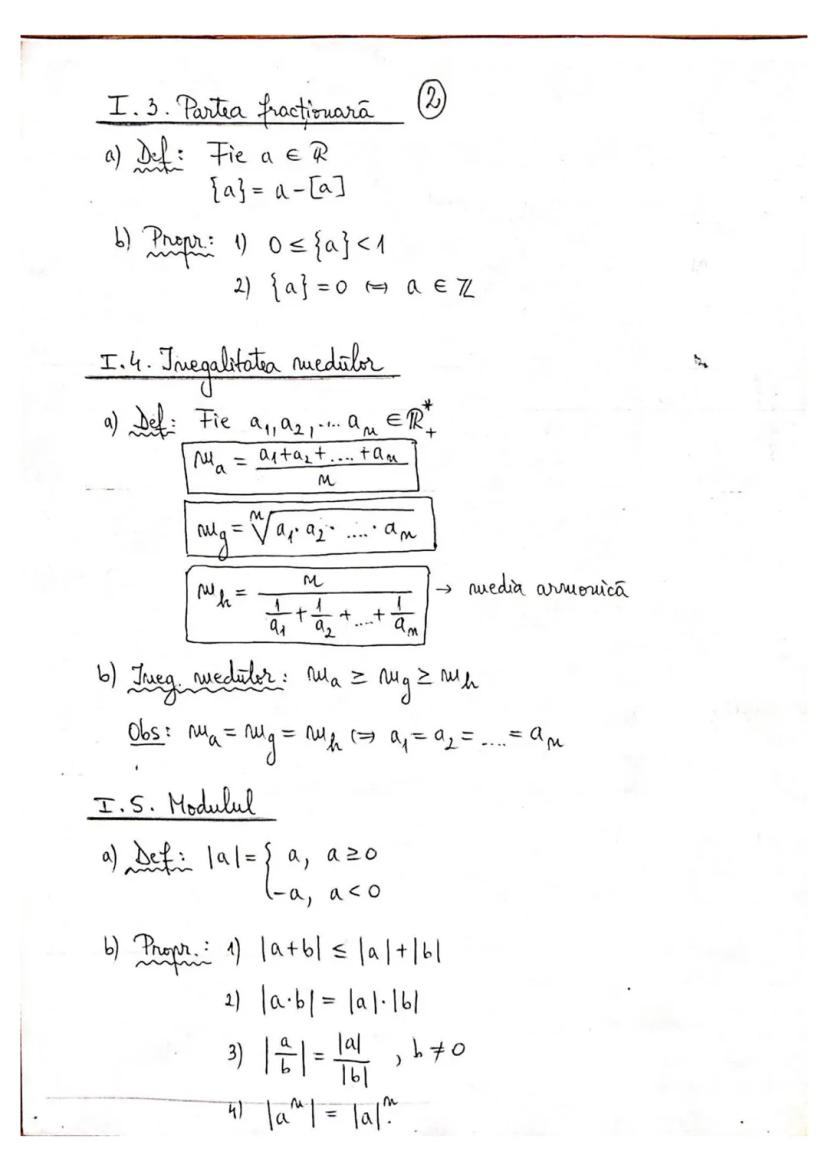 I.3. Partea fracționară ②
a) Def: Fie a ∈ ℝ
{a} = a - [a]
b) Propr.: 1) 0 ≤ {a} < 1
2) {a} = 0 ⟺ a ∈ ℤ
I.4. Inegalitatea mediilor
a) Def: Fie a₁, a₂, .... aₙ ∈ ℝ₊*
mₐ = (a₁ + a₂ + .... + aₙ) / n
m_g = ⁿ√(a₁ · a₂ · .... · aₙ)
m_h = n / (1/a₁ + 1/a₂ + .... + 1/aₙ) → media armonică
b) Ineg. mediilor: mₐ ≥ m_g ≥ m_h
Obs: mₐ = m_g = m_h ⟺ a₁ = a₂ = .... = aₙ
I.5. Modulul
a) Def: |a| = { a, a ≥ 0
-a, a < 0
b) Propr.: 1) |a+b| ≤ |a|+|b|
2) |a·b| = |a|·|b|
3) |a/b| = |a|/|b| , b ≠ 0
4) |aⁿ| = |a|ⁿ.